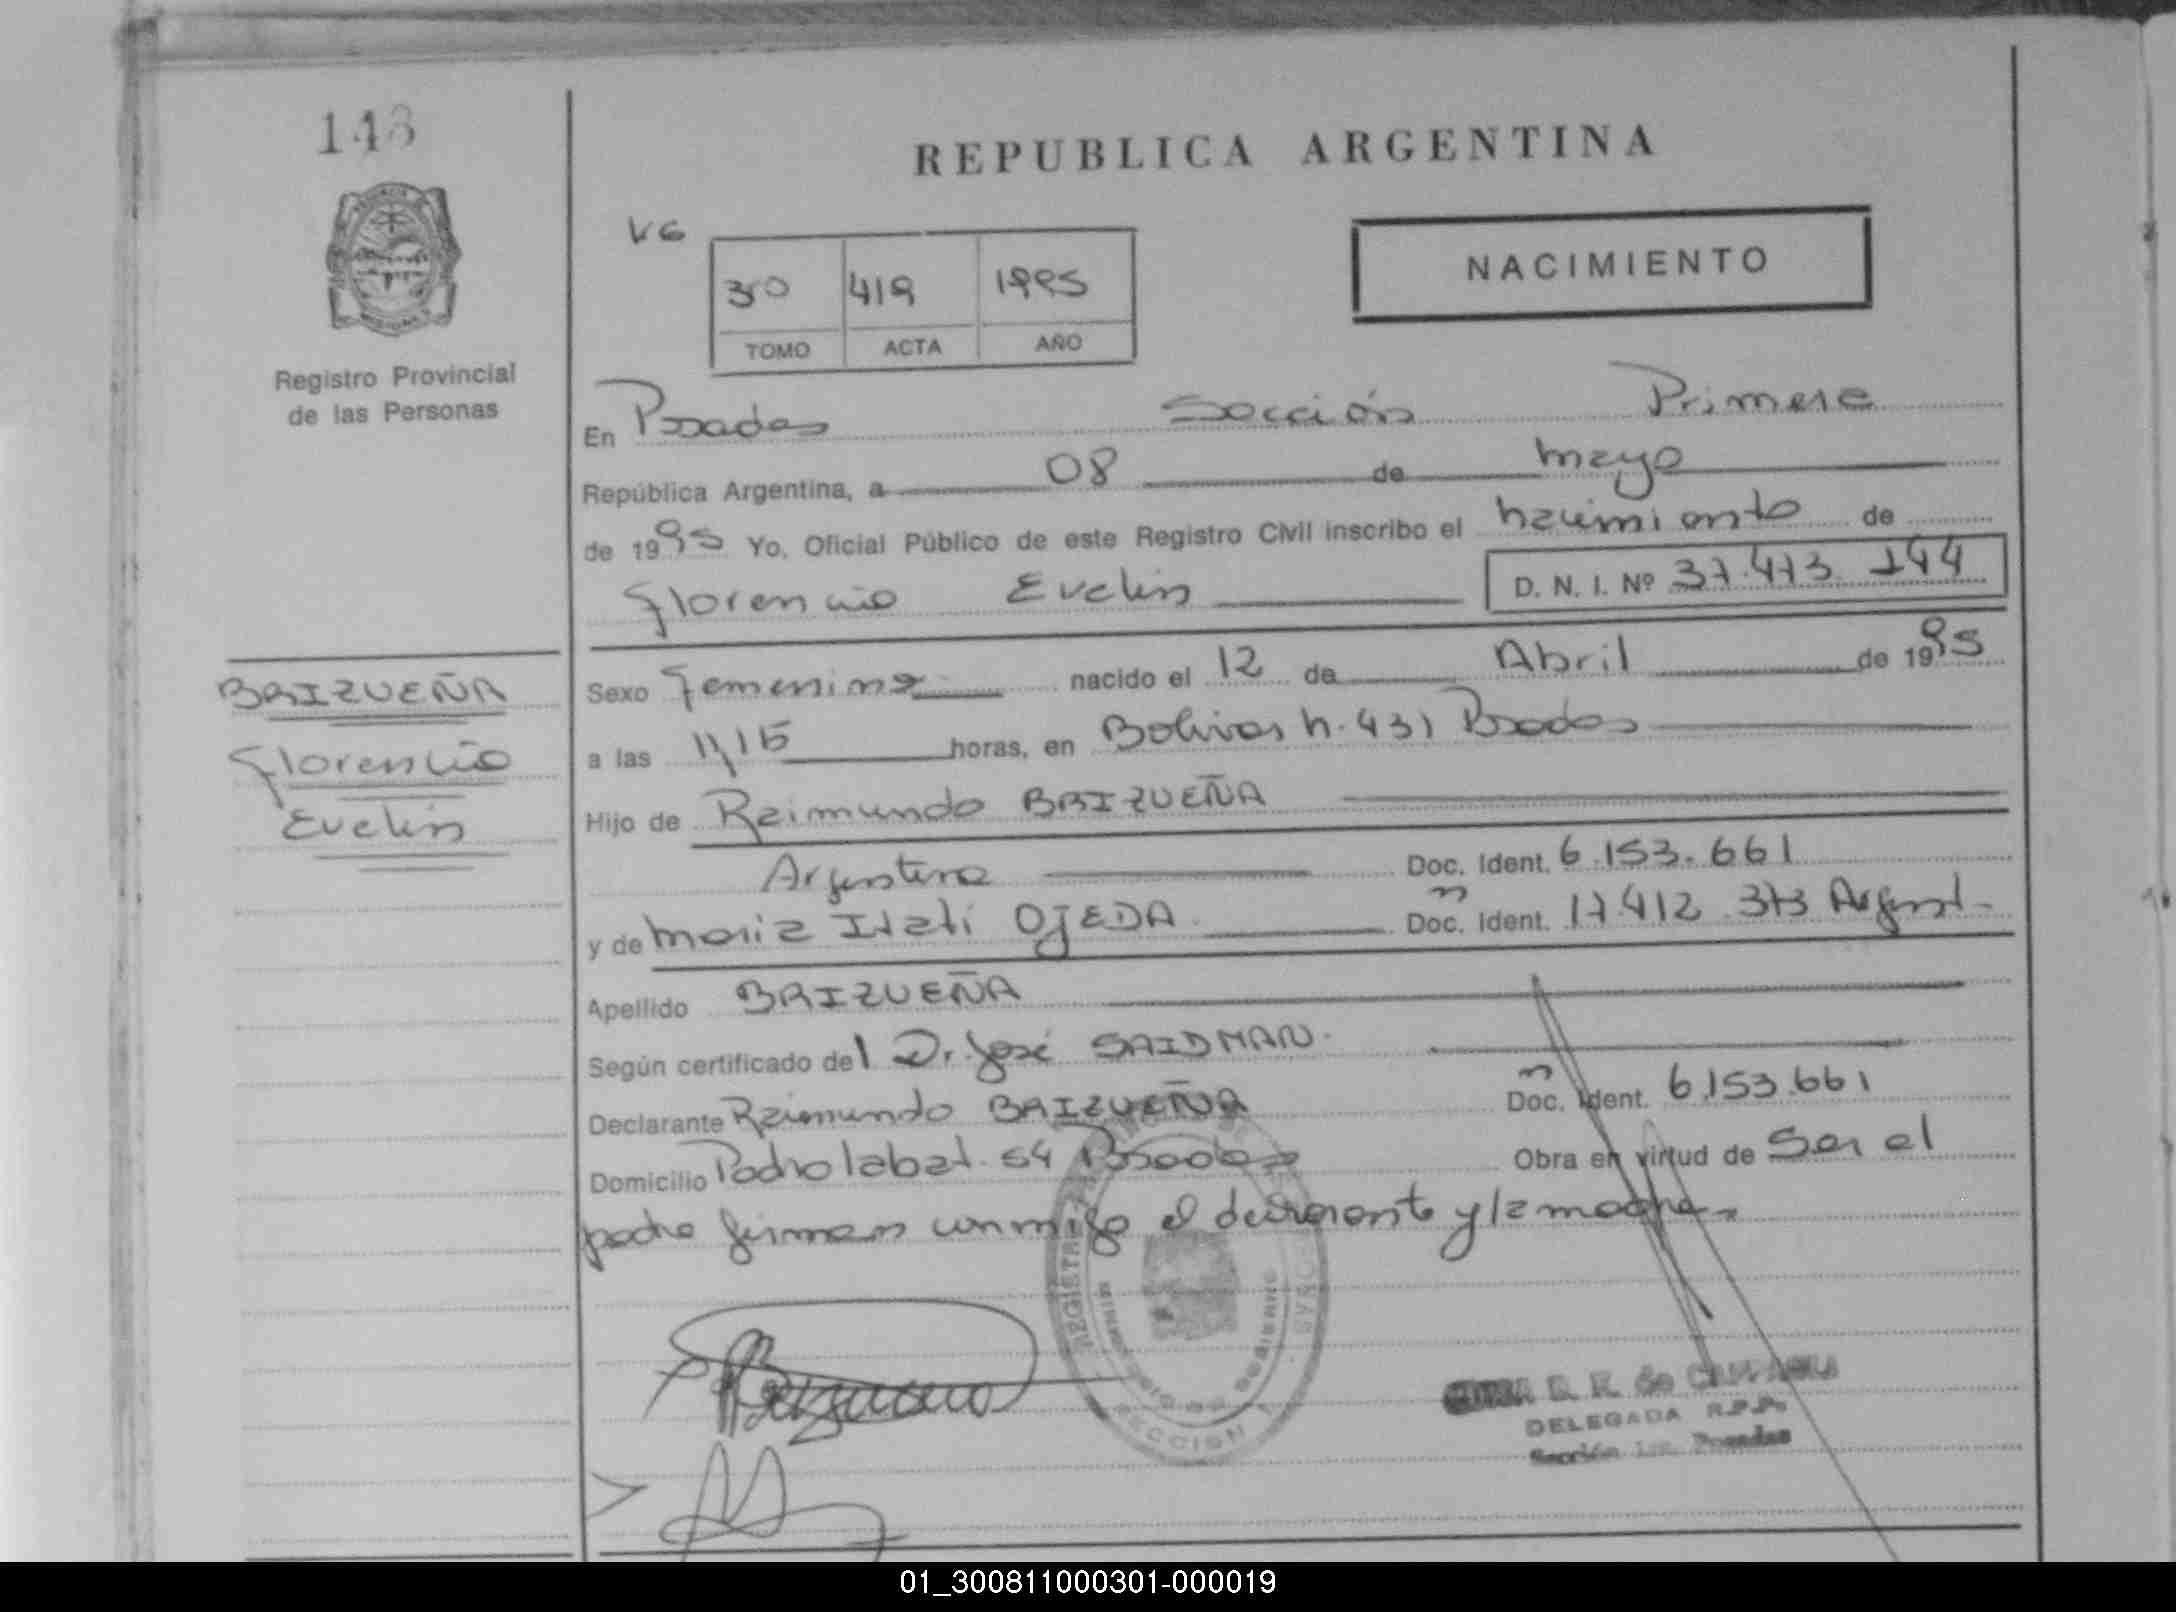 148
REPUBLICA ARGENTINA
VG
30 419 1995
TOMO ACTA AÑO
NACIMIENTO
Registro Provincial
de las Personas
En Posadas Sección Primera
República Argentina, a 08 de mayo
de 1995 Yo, Oficial Público de este Registro Civil inscribo el nacimiento de
Florencia Evelin D. N. I. Nº 37.473.144
BRIZUEÑA
Florencia
Evelin
Sexo Femenino nacido el 12 de Abril de 1995
a las 11,15 horas, en Bolivar n. 431 Posadas
Hijo de Raimundo BRIZUEÑA
Argentina Doc. Ident. 6.153.661
y de Maria Itati OJEDA Doc. Ident. 17.412.373 Argent.
Apellido BRIZUEÑA
Según certificado del Dr. José SAIDMAN.
Declarante Raimundo BRIZUEÑA Doc. Ident. 6.153.661
Domicilio Pedro labat. 54 Posadas Obra en virtud de Ser el
padre firman conmigo el declarante y la madre
SECCION 1
DELEGADA R.P.P.
Sección 1ra. Posadas
01_300811000301-000019